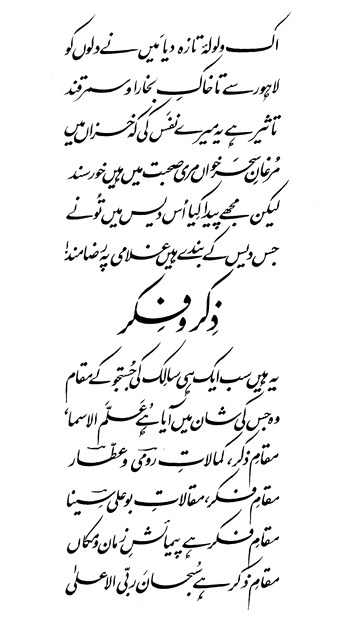 اک ولولۂ تازہ دیا مَیں نے دلوں کو
لاہور سے تا خاکِ بخارا و سمرقند
تاثیر ہے یہ میرے نفَس کی کہ خزاں میں
مُرغانِ سحَر خواں مری صحبت میں ہیں خورسند
لیکن مجھے پیدا کِیا اُس دیس میں تُو نے
جس دیس کے بندے ہیں غلامی پہ رضامند!
ذِکر و فِکر
یہ ہیں سب ایک ہی سالِک کی جُستجو کے مقام
وہ جس کی شان میں آیا ہے ’عَلَّمَ الاسما‘
مقامِ ذکر، کمالاتِ رومیؔ و عطّارؔ
مقامِ فکر، مقالاتِ بو علی سِیناؔ
مقامِ فکر ہے پیمائشِ زمان و مکاں
مقامِ ذکر ہے سُبحانَ ربّیَ الاعلیٰ